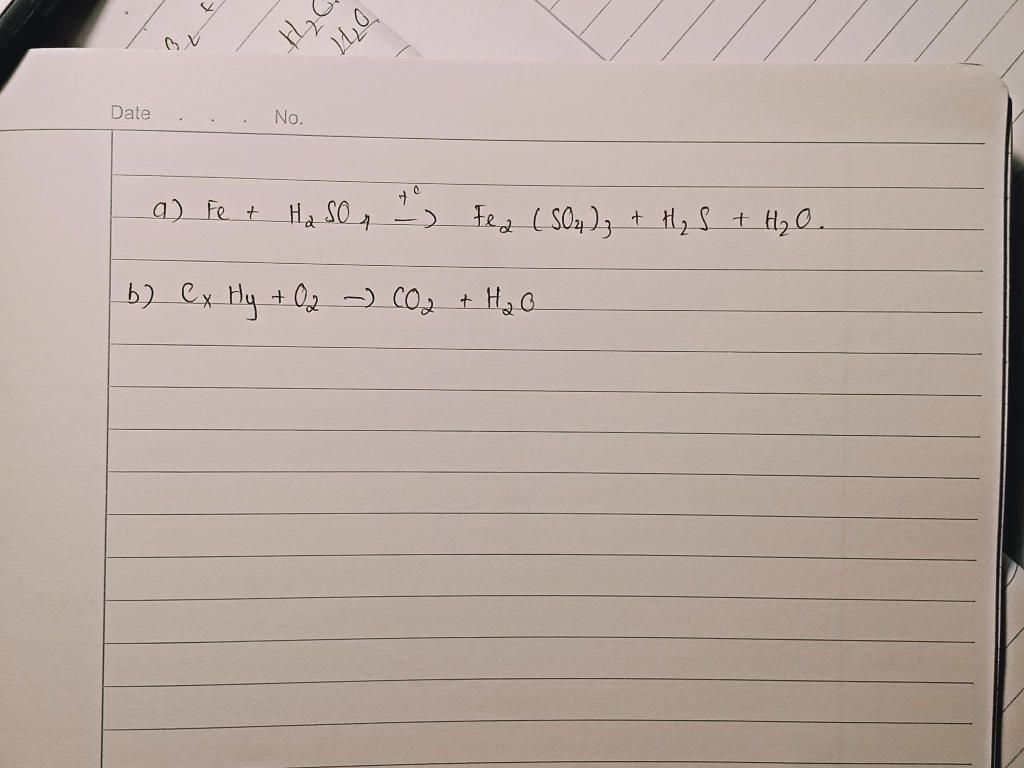 H₂O
Date . . . No.
a) Fe + H₂SO₄ –t⁰→ Fe₂(SO₄)₃ + H₂S + H₂O.
b) CₓHy + O₂ → CO₂ + H₂O